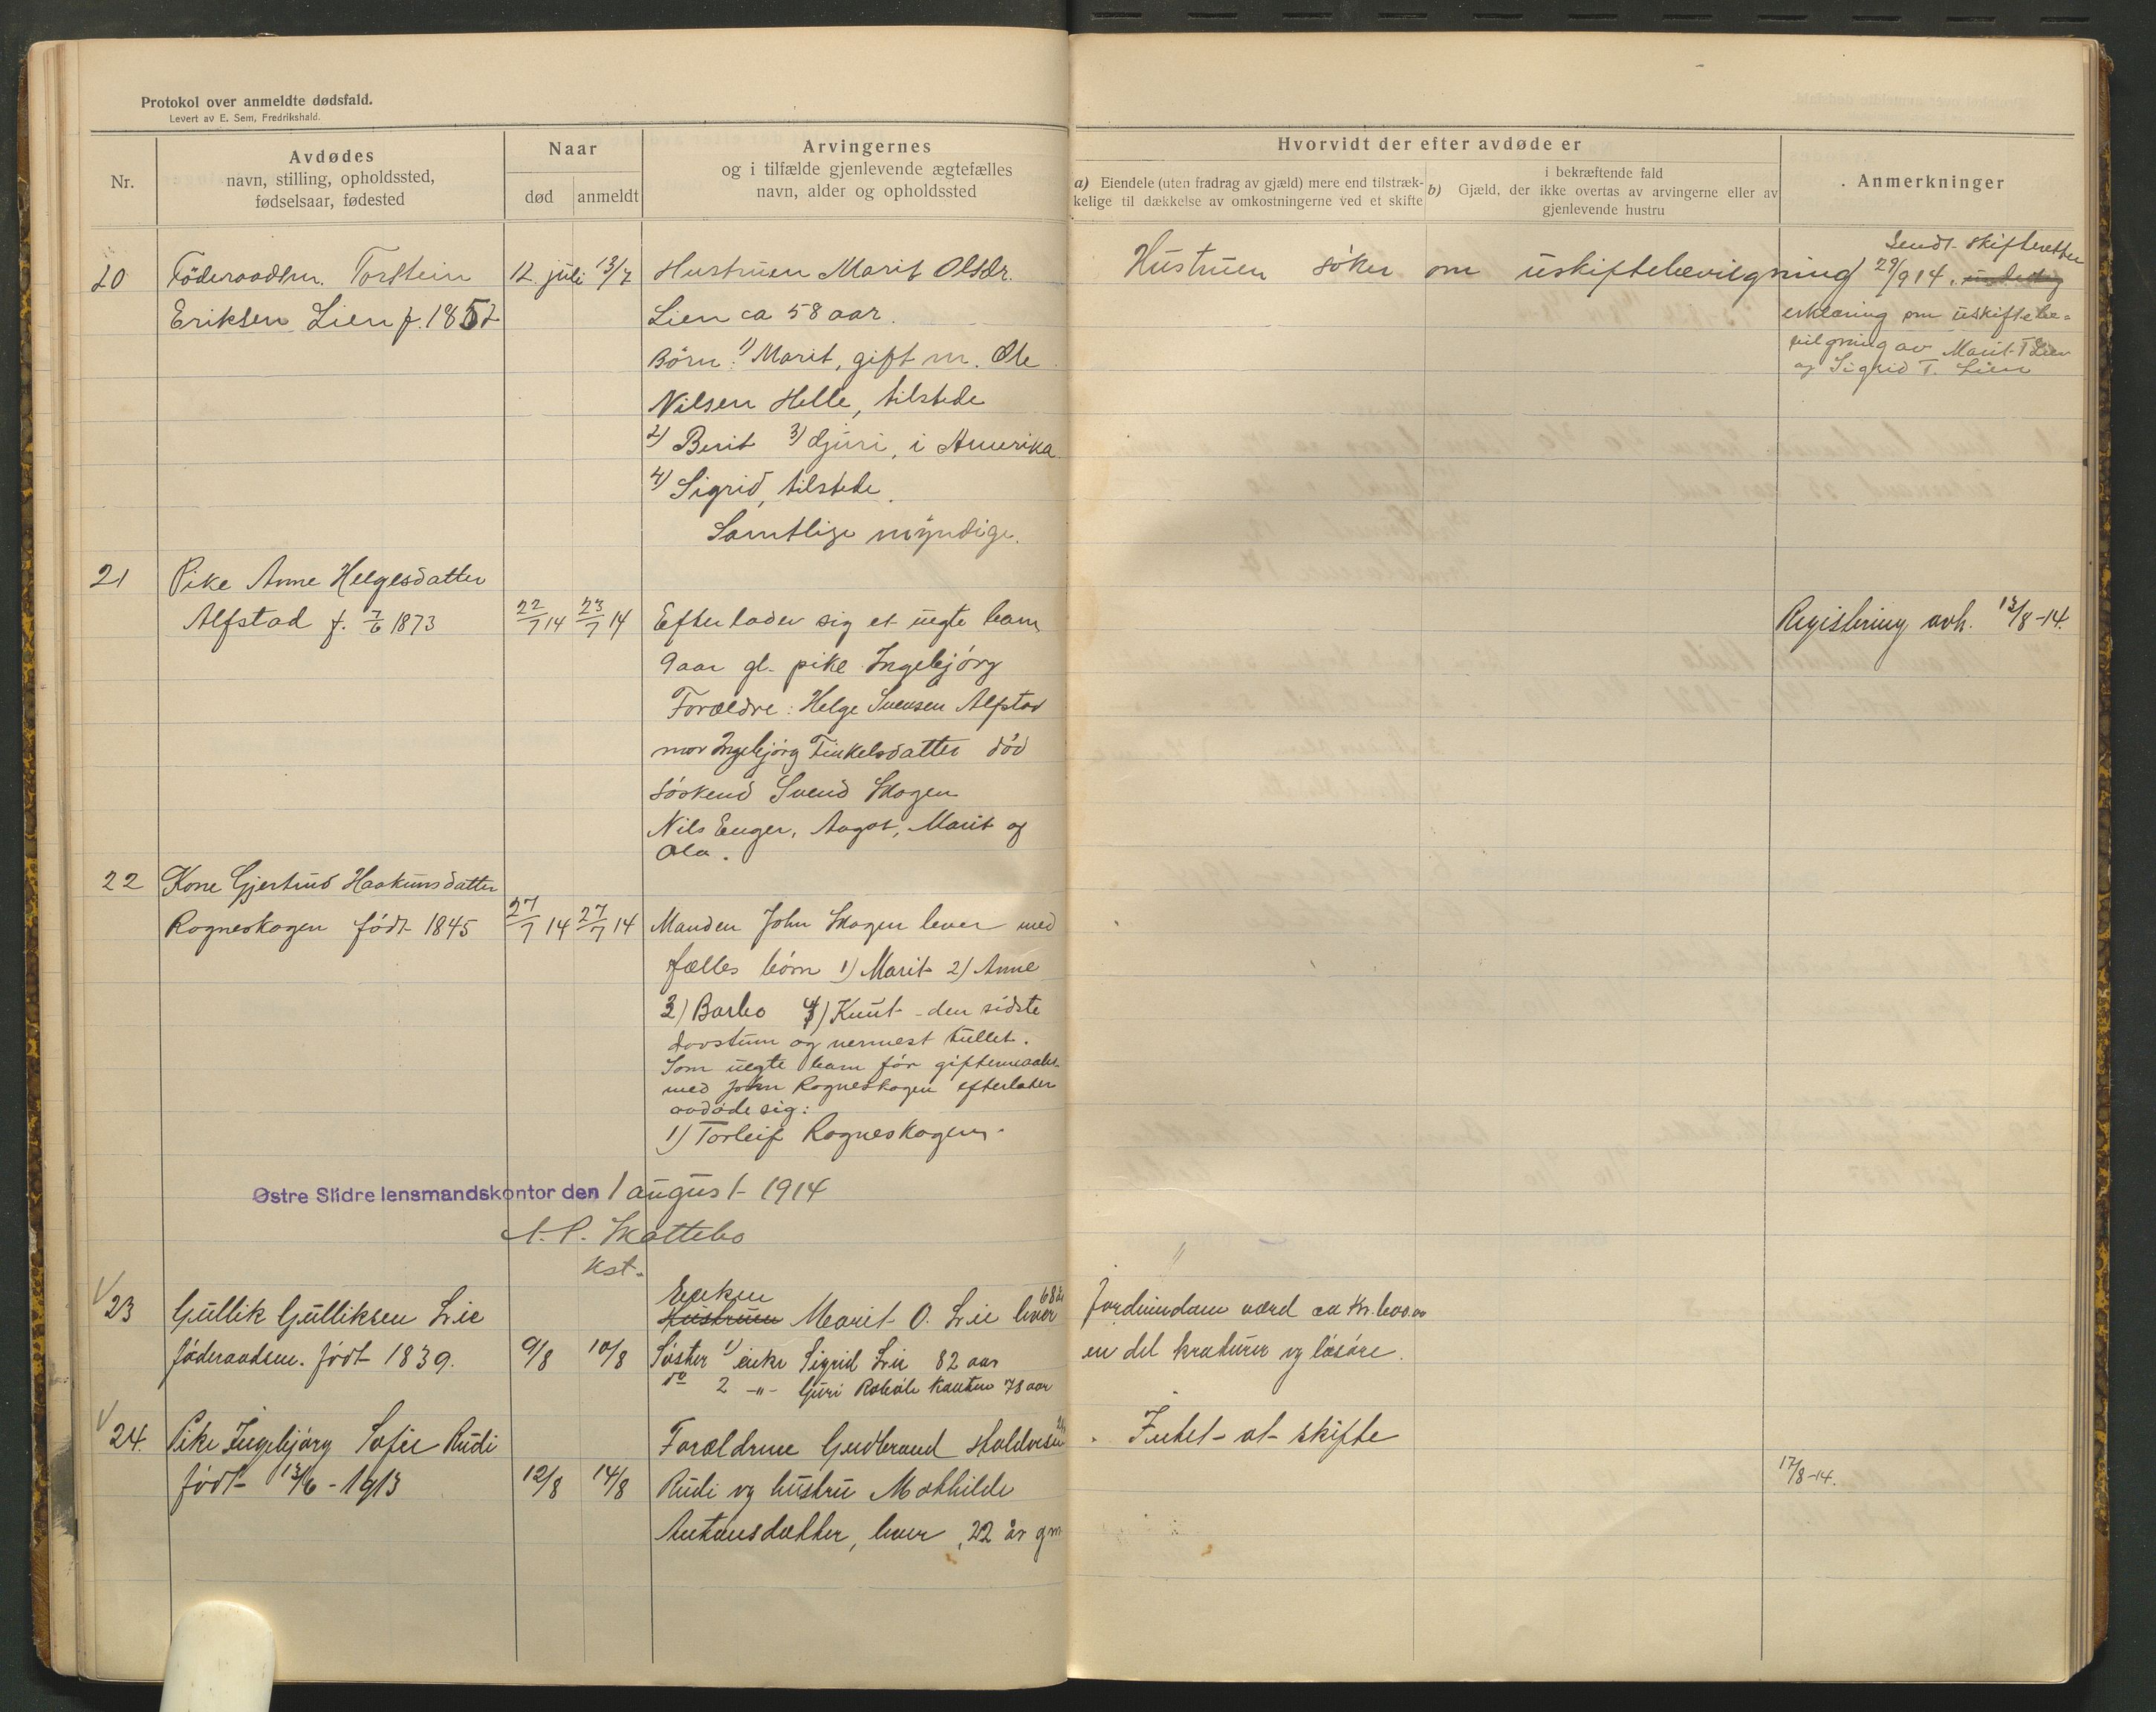 Protokol over anmeldte dødsfald.
Levert av E. Sem, Fredrikshald.
Nr.
Avdødes
navn, stilling, opholdssted,
fødselsaar, fødested
Naar
død
anmeldt
Arvingernes
og i tilfælde gjenlevende ægtefælles
navn, alder og opholdssted
Hvorvidt der efter avdøde er
a) Eiendele (uten fradrag av gjæld) mere end tilstræk-
kelige til dækkelse av omkostningerne ved et skifte
i bekræftende fald
b) Gjæld, der ikke overtas av arvingerne eller av
gjenlevende hustru
Anmerkninger
20 Föderaadsm. Torstein
Eriksen Lien f. 1852
12. juli 13/7
Hustruen Marit Olsdr.
Lien ca 58 aar.
Börn: 1) Marit, gift m. Ole
Nilsen Helle, tilstede
2) Berit 3) Gjuri, i Amerika
4) Sigrid, tilstede.
Samtlige myndige.
Hustruen söker om uskiftebevilgning
Sendt skifteretten
29/9 14.
erklæring om uskiftebe-
vilgning av Marit T Lien
og Sigrid T. Lien
21 Pike Anne Helgesdatter
Alfstad f. 7/6 1873
22/7 14 23/7 14
Efterlader sig et uegte barn
9 aar gl. pike Ingebjörg
Forældre: Helge Svensen Alfstad
mor Ingebjörg Finkelsdatter död
söskend Svend Skogen
Nils Enger, Aagot, Marit og
Ola.
Registering avh. 13/8-14.
22 Kone Gjertrud Haakunsdatter
Rogneskogen födt 1845
27/7 14 27/7 14
Manden John Skogen lever med
fælles börn 1) Marit 2) Anne
3) Barbo 4) Knut - den sidste
dovstum og nermest tullet.
Som uegte barn för giftemaalet
med John Rogneskogen efterlater
avdöde sig:
1) Torleif Rogneskogen.
Østre Slidre lensmandskontor den 1 august 1914
A. P. Skattebo
Kst.
23 Gullik Gulliksen Lie
föderaadsm. födt 1839.
9/8 10/8
Enken 68 år
Hustruen Marit O. Lie lever
Söster 1) enke Sigrid Lie 82 aar
do 2 -"- Guri Roböle Kanten 78 aar
"
en del kreaturer og lösöre.
24. Pike Ingebjörg Sofie Rudi
födt 13/6 - 1913
12/8 14/8
Forældrene Gudbrand Haldorsen
Rudi og hustru Mathilde
Antonsdatter, lever, 22 år gm
Intet at skifte
17/8-14.